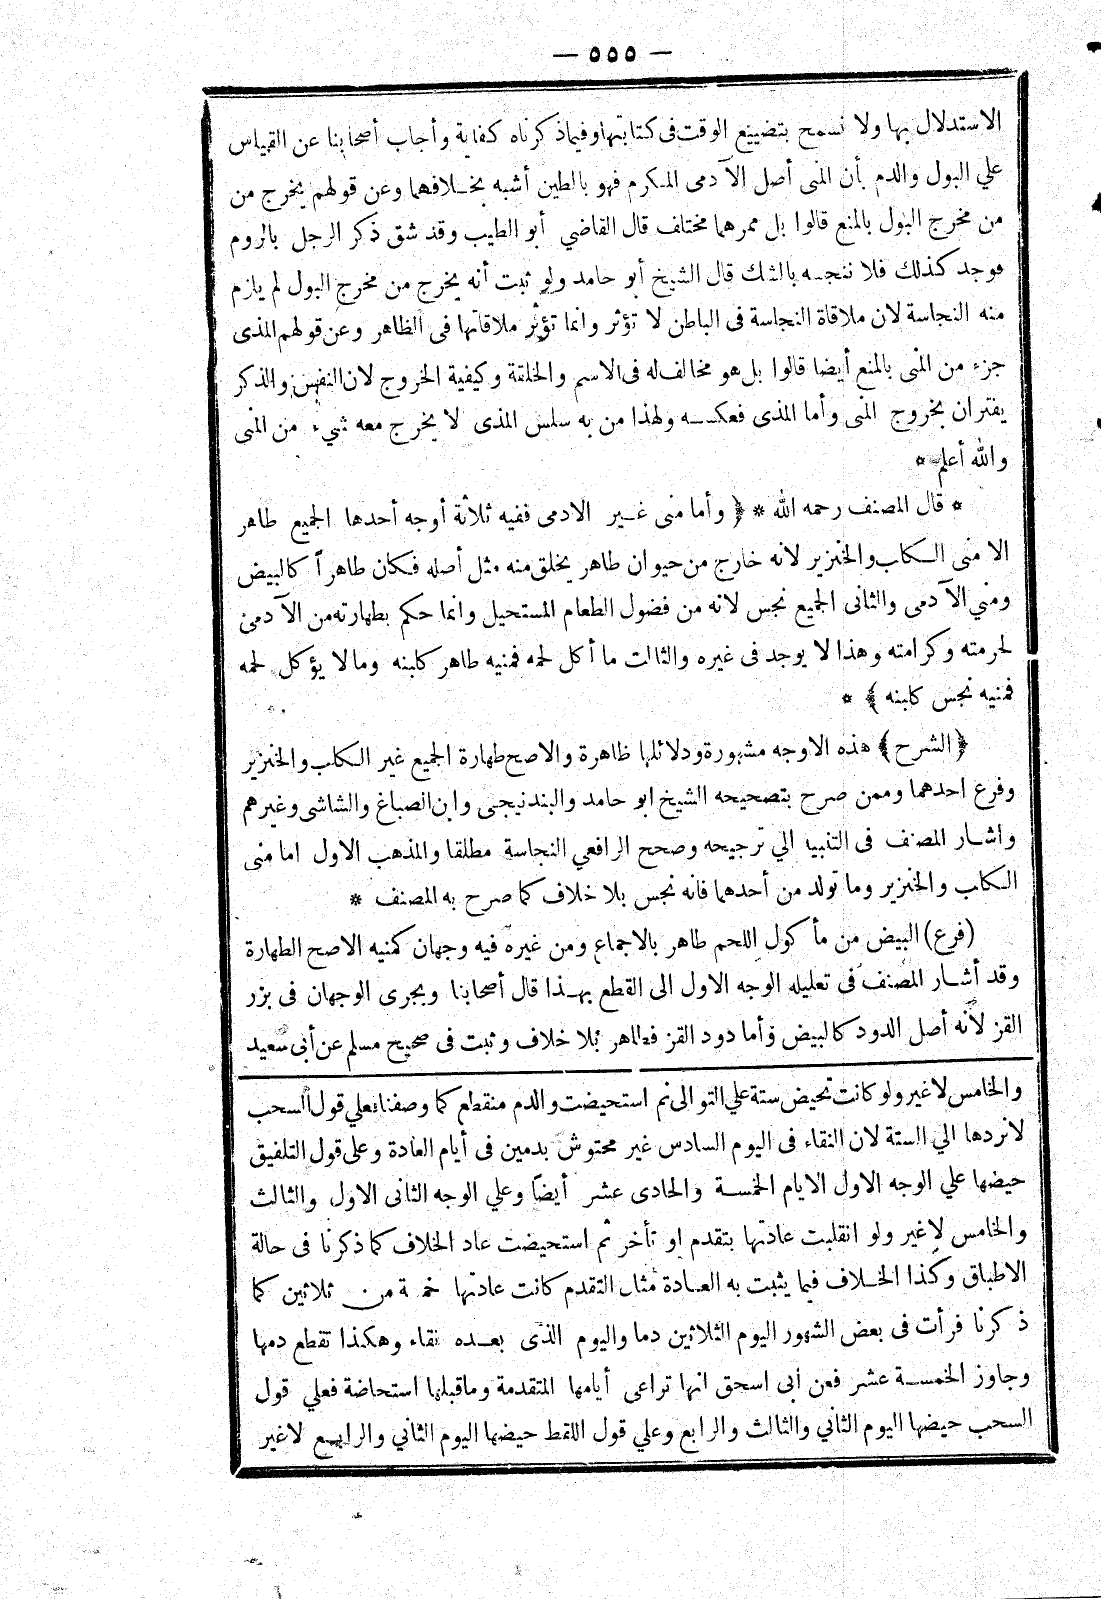 — ٥٥٥ —
الاستدلال بها ولا نسمح بتضييع الوقت فى كتابتها وفيما ذكرناه كفاية وأجاب أصحابنا عن القياس
علي البول والدم بأن المنى أصل الآدمى المكرم فهو بالطين أشبه بخلافهما وعن قولهم يخرج من
من مخرج البول بالمنع قالوا بل ممرهما مختلف قال القاضي أبو الطيب وقد شق ذكر الرجل بالروم
فوجد كذلك فلا ننجسه بالشك قال الشيخ أبو حامد ولو ثبت أنه يخرج من مخرج البول لم يلزم
منه النجاسة لان ملاقاة النجاسة فى الباطن لا تؤثر وانما تؤثر ملاقاتها فى الظاهر وعن قولهم المذى
جزء من المنى بالمنع أيضا قالوا بل هو مخالف له فى الاسم والخلقة وكيفية الخروج لان النفس والذكر
يفتران بخروج المنى وأما المذى فعكسه ولهذا من به سلس المذى لا يخرج معه شيء من المنى
والله أعلم *
* قال المصنف رحمه الله * ﴿ وأما منى غير الادمى ففيه ثلاثة أوجه أحدها الجميع طاهر
الا منى الكلب والخنزير لانه خارج من حيوان طاهر يخلق منه مثل أصله فكان طاهراً كالبيض
ومني الآدمى والثانى الجميع نجس لانه من فضول الطعام المستحيل وانما حكم بطهارته من الآدمى
لحرمته وكرامته وهذا لا يوجد فى غيره والثالث ما أكل لحمه فمنيه طاهر كلبنه وما لا يؤكل لحمه
فمنيه نجس كلبنه ﴾ *
﴿ الشرح ﴾ هذه الاوجه مشهورة ودلائلها ظاهرة والاصح طهارة الجميع غير الكلب والخنزير
وفرع احدهما وممن صرح بتصحيحه الشيخ ابو حامد والبندنيجى وابن الصباغ والشاشى وغيرهم
واشار المصنف فى التنبيه الي ترجيحه وصحح الرافعي النجاسة مطلقا والمذهب الاول اما منى
الكلب والخنزير وما تولد من أحدهما فانه نجس بلا خلاف كما صرح به المصنف *
(فرع) البيض من مأكول اللحم طاهر بالاجماع ومن غيره فيه وجهان كمنيه الاصح الطهارة
وقد أشار المصنف فى تعليله الوجه الاول الى القطع بهذا قال أصحابنا ويجرى الوجهان فى بزر
القز لأنه أصل الدود كالبيض وأما دود القز فطاهر بلا خلاف وثبت فى صحيح مسلم عن أبى سعيد
والخامس لا غير ولو كانت تحيض ستة علي التوالى ثم استحيضت والدم منقطع كما وصفنا فعلي قول السحب
لا نردها الي الستة لان النقاء فى اليوم السادس غير محتوش بدمين فى أيام العادة وعلى قول التلفيق
حيضها علي الوجه الاول الايام الخمسة والحادى عشر أيضا وعلي الوجه الثانى الاول والثالث
والخامس لا غير ولو انقلبت عادتها بتقدم او تأخر ثم استحيضت عاد الخلاف كما ذكرنا فى حالة
الاطباق وكذا الخلاف فيما يثبت به العادة مثال التقدم كانت عادتها خمسة من ثلاثين كما
ذكرنا فرأت فى بعض الشهور اليوم الثلاثين دما واليوم الذى بعده نقاء وهكذا تقطع دمها
وجاوز الخمسة عشر فعن أبى اسحق انها تراعى أيامها المتقدمة وما قبلها استحاضة فعلي قول
السحب حيضها اليوم الثاني والثالث والرابع وعلي قول اللقط حيضها اليوم الثاني والرابع لا غير